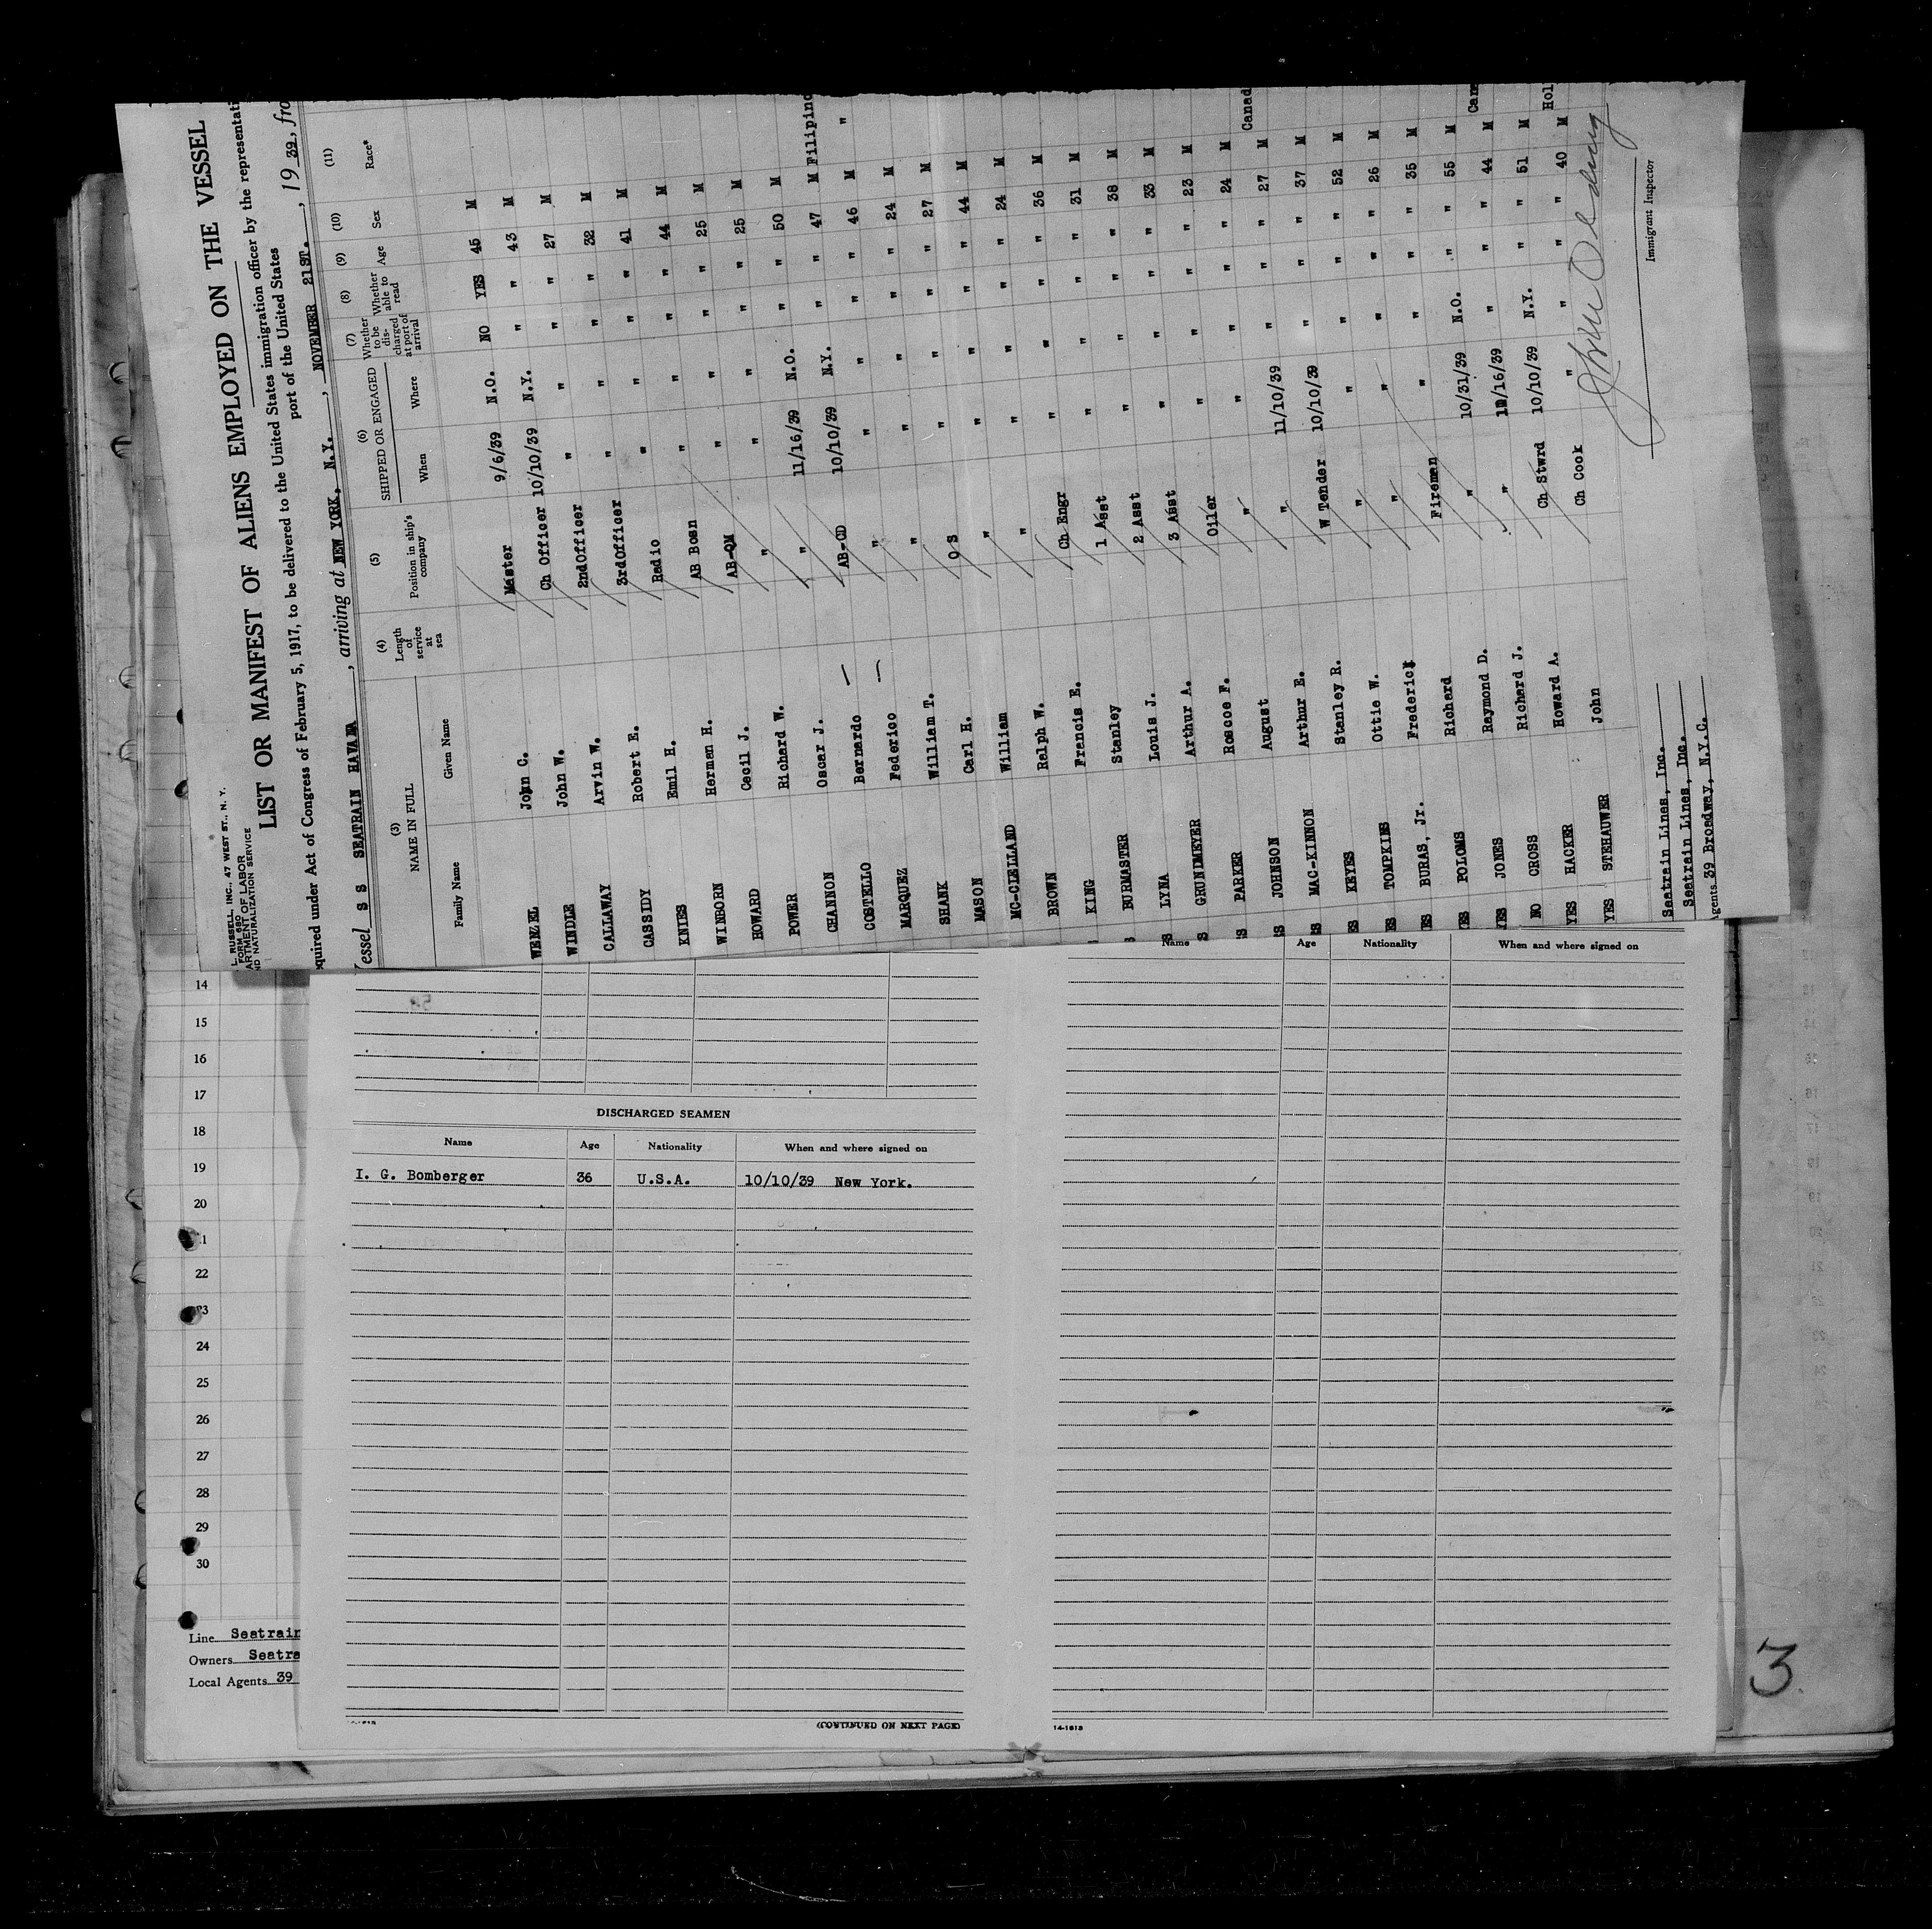 L. RUSSELL, INC., 47 WEST ST., N. Y.
FORM 680
ARTMENT OF LABOR
ND NATURALIZATION SERVICE
LIST OR MANIFEST OF ALIENS EMPLOYED ON THE VESSEL
quired under Act of Congress of February 5, 1917, to be delivered to the United States immigration officer by the representati
port of the United States
Vessel S S SEATRAIN HAVANA, arriving at NEW YORK, N.Y., NOVEMBER 21ST., 1939, fro
(3) (4) (5) (6) (7) (8) (9) (10) (11)
NAME IN FULL Length of service at sea Position in ship's company SHIPPED OR ENGAGED Whether to be discharged at port of arrival Whether able to read Age Sex Race*
Family Name Given Name When Where
WENZEL John C. Master 9/6/39 N.O. NO YES 45 M
WINDLE John W. Ch Officer 10/10/39 N.Y. " " 43 M
CALLAWAY Arvin W. 2ndOfficer " " " " 27 M
CASSIDY Robert E. 3rdOfficer " " " " 32 M
KNIES Emil H. Radio " " " " 41 M
WINBORN Herman H. AB Bosn " " " " 44 M
HOWARD Cecil J. AB-QM " " " " 25 M
POWER Richard W. " " " " " 25 M
CHANNON Oscar J. " 11/16/39 N.O. " " 50 M
COSTELLO Bernardo — AB-CD 10/10/39 N.Y. " " 47 M Filipino
MARQUEZ Federico — " " " " " 46 M "
SHANK William T. " " " " " 24 M
MASON Carl H. O S " " " " 27 M
MC-CLELLAND William " " " " " 44 M
BROWN Ralph W. " " " " " 24 M
KING Francis E. Ch Engr " " " " 36 M
BURMASTER Stanley 1 Asst " " " " 31 M
LYNA Louis J. 2 Asst " " " " 38 M
S GRUNDMEYER Arthur A. 3 Asst " " " " 33 M
S PARKER Roscoe F. Oiler " " " " 23 M
S JOHNSON August " " " " " 24 M
S MAC-KINNON Arthur E. " 11/10/39 " " " 27 M Canad
ES KEYES Stanley R. W Tender 10/10/39 " " " 37 M
ES TOMPKINS Ottie W. " " " " " 52 M
ES BURAS, Jr. Frederick " " " " " 26 M
YES POLOMS Richard Fireman " " " " 35 M
YES JONES Raymond D. " 10/31/39 N.O. " " 55 M
NO CROSS Richard J. " 11/16/39 " " " 44 M Can
YES HACKER Howard A. Ch Stwrd 10/10/39 N.Y. " " 51 M
YES STEHAUWER John Ch Cook " " " " 40 M Hol
Seatrain Lines, Inc.
Seatrain Lines, Inc.
Agents 39 Broadway, N.Y.C.
Immigrant Inspector
14
15
16
17
18
19
20
22
23
24
25
26
27
28
29
30
Line Seatrain
Owners Seatra
Local Agents 39
DISCHARGED SEAMEN
Name Age Nationality When and where signed on
I. G. Bomberger 36 U.S.A. 10/10/39 New York.
(CONTINUED ON NEXT PAGE)
Name Age Nationality When and where signed on
14-1613
3